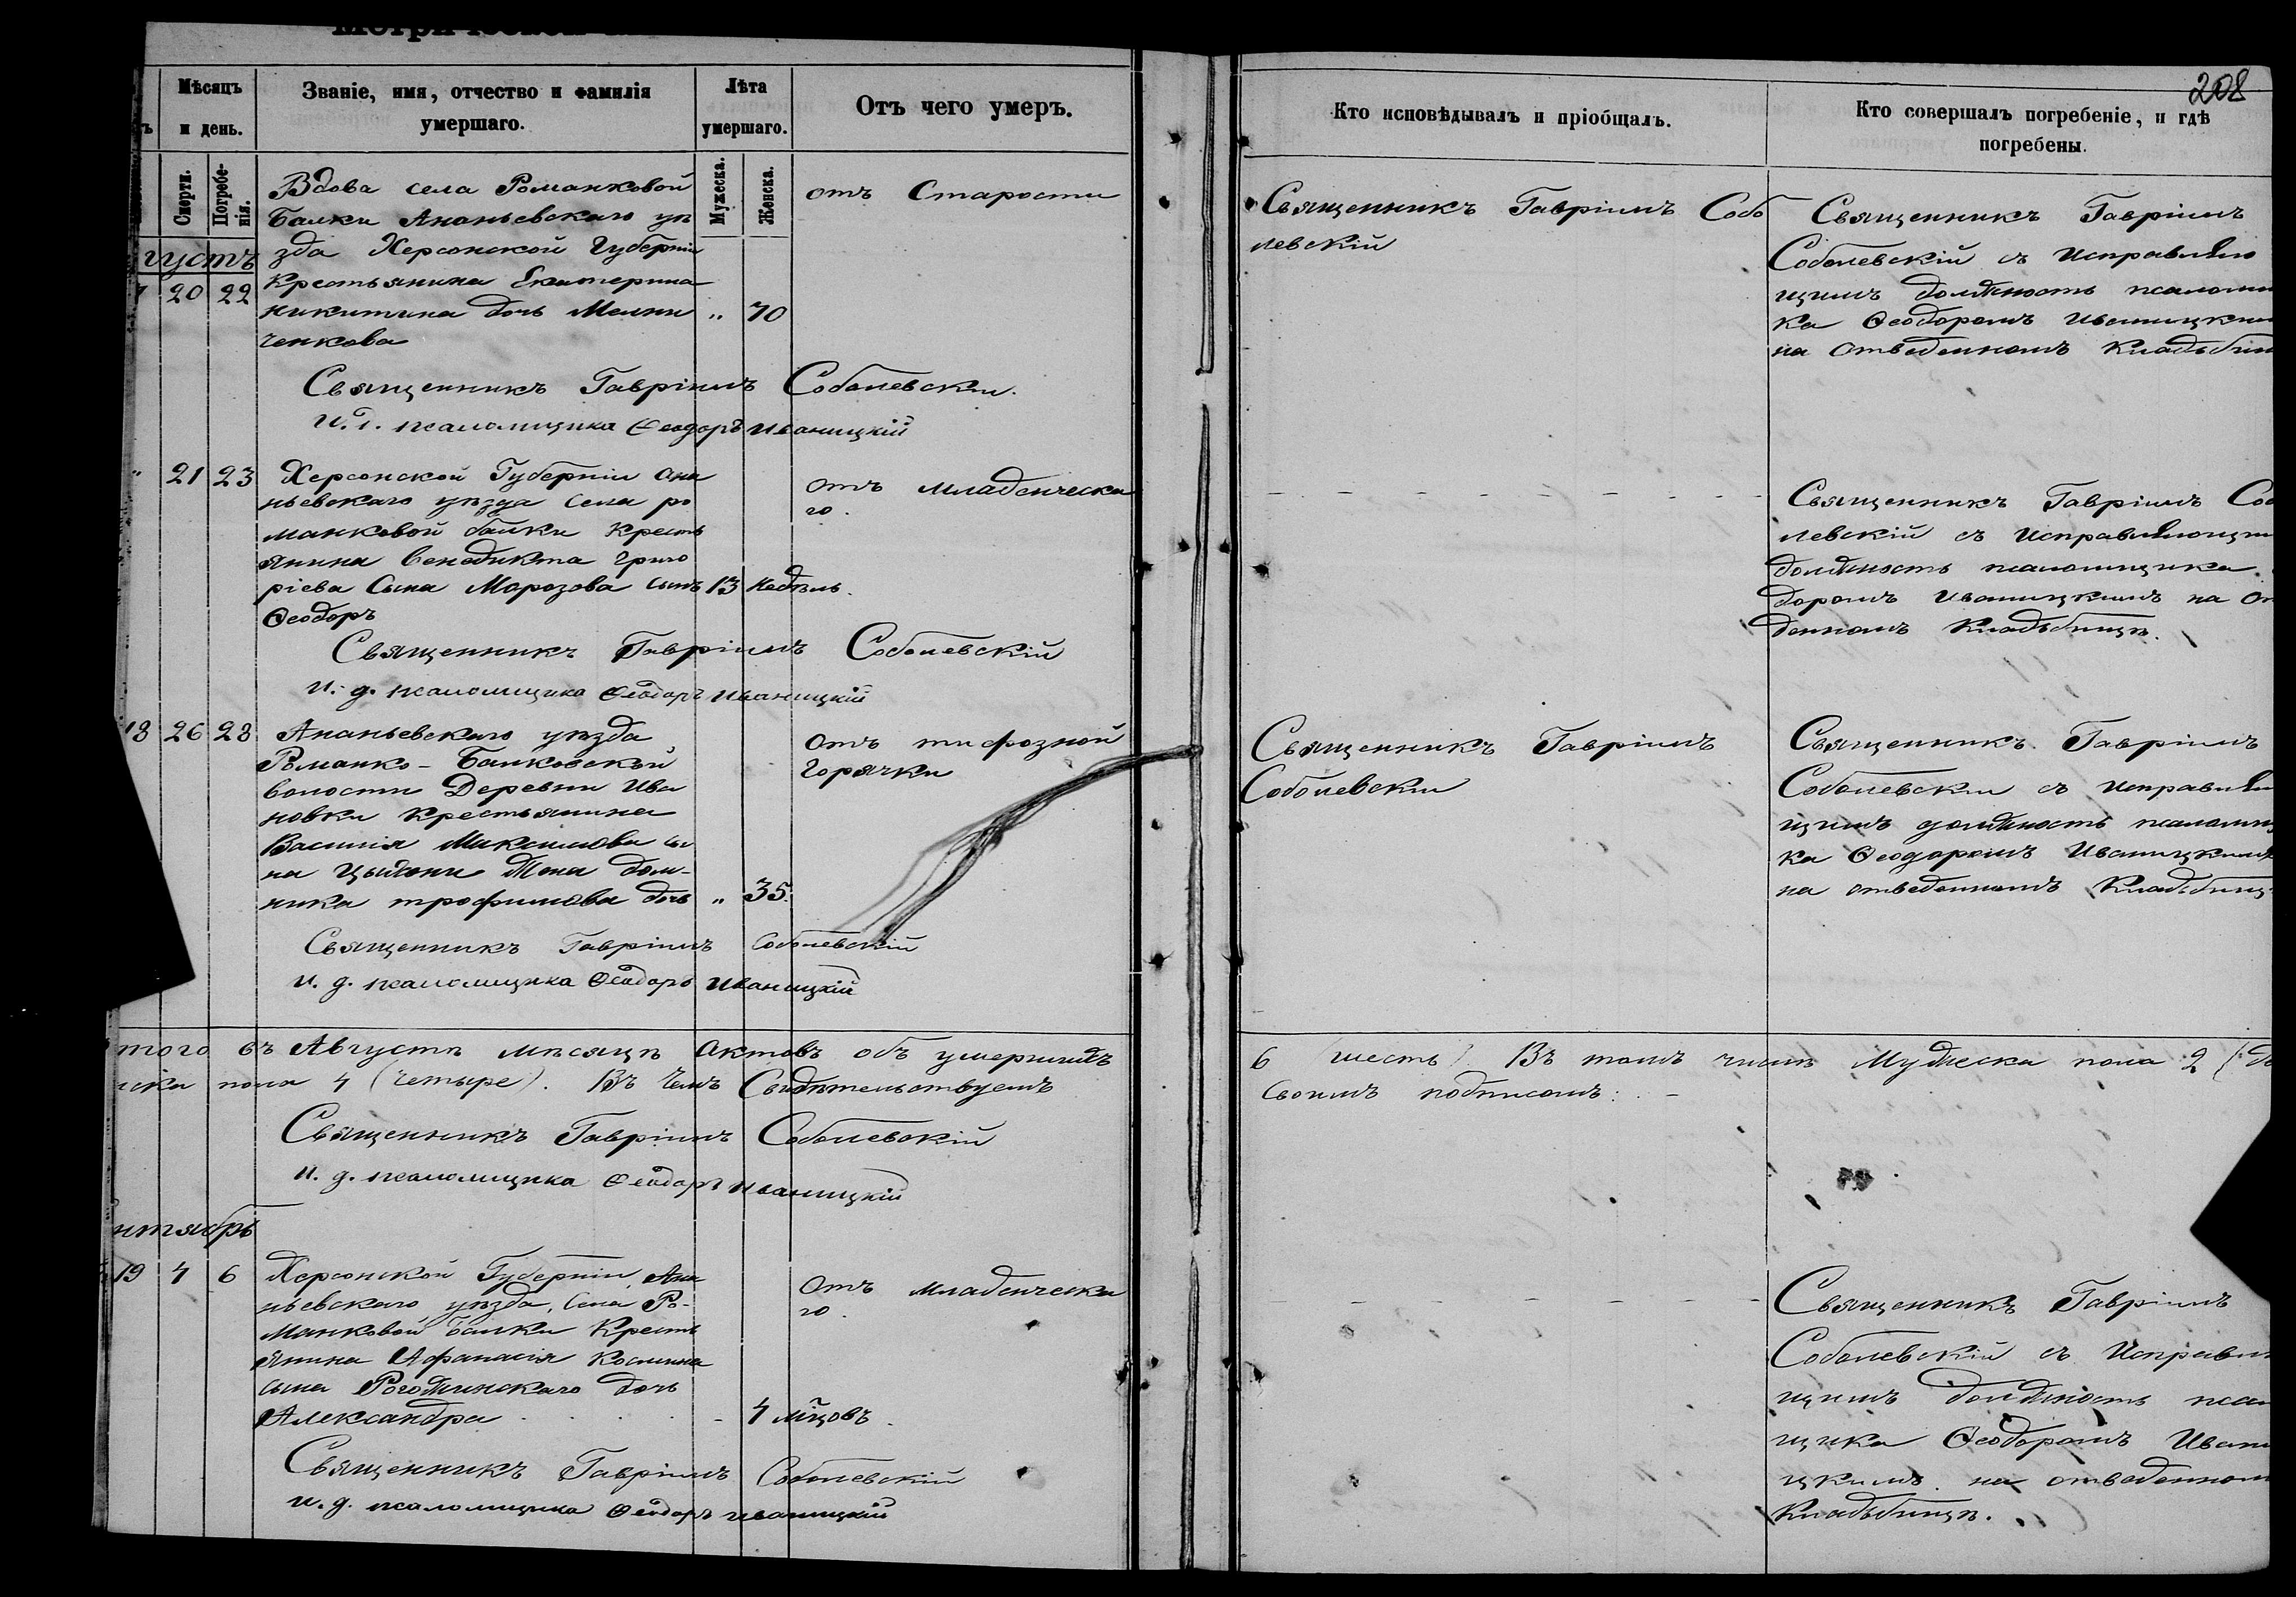 208
Мѣсяцъ и день.
Званіе, имя, отчество и фамилія умершаго.
Лѣта умершаго.
Отъ чего умеръ.
Кто исповѣдывалъ и пріобщалъ.
Кто совершалъ погребеніе, и гдѣ погребены.
Смерти.
Погребенія.
Мужеска.
Женска.
густъ
20 22
Вдова села Романковой
Балки Ананьевскаго уѣ
зда Херсонской Губерніи
Крестьянина Екатерина
никитина дочь Мельни
ченкова
" 70
отъ Старости
Священникъ Гавріилъ Собо
левскій
Священникъ Гавріилъ
Соболевскій съ Исправляю
щимъ должность псаломщи
ка Ѳеодоромъ Иваницкимъ
на отведенномъ Кладбищ
Священникъ Гавріилъ Соболевскій.
И. д. псаломщика Ѳеодоръ Иваницкій
" 21 23
Херсонской Губерніи Ана
ньевскаго уѣзда Села ро
манковой балки Кресть
янина Венедикта Григо
ріева Сына Морозова сынъ 13 недѣль.
Ѳеодоръ
отъ младенческа
го.
Священникъ Гавріилъ Соб
левскій съ Исправляющи
должность псаломщика
доромъ Иваницкимъ на от
денномъ Кладбищѣ.
Священникъ Гавріилъ Соболевскій
И. д. псаломщика Ѳеодоръ Иваницкій
18 26 28
Ананьевскаго уѣзда
Романко-Балковской
волости Деревни Ива
новки Крестьянина
Василія Максимова сы
на Жена дом-
ника трофимова дочь " 35.
Отъ тифозной
Горячки
Священникъ Гавріилъ
Соболевскій
Священникъ Гавріилъ
Соболевскій съ Исправля
щимъ должность псаломщ
ка Ѳеодоромъ Иваницкимъ
на отведенномъ Кладбищ
Священникъ Гавріилъ Соболевскій
и. д. псаломщика Ѳеодоръ Иваницкій
того въ Августѣ мѣсяцѣ Актовъ объ умершихъ 6 (шесть) Въ томъ числѣ Мужеска пола 2 (:дв
ска пола 4 (четыре). Въ чемъ Свидѣтельствуемъ Своимъ подписомъ: -
Священникъ Гавріилъ Соболевскій
И. д. псаломщика Ѳеодоръ Иваницкій
нтябрь
19 4 6
Херсонской Губерніи Ана
ньевскаго уѣзда, Села Ро-
манковой Балки Кресть
янина Афанасія Космина
сына Рогожинскаго дочь
Александра - 4 мцовъ.
Отъ младенческа
го.
Священникъ Гавріилъ
Соболевскій съ Исправл
щимъ должность псал
щика Ѳеодоромъ Ивани
цкимъ на отведенном
Кладбищѣ.
Священникъ Гавріилъ Соболевскій
и. д. псаломщика Ѳеодоръ Иваницкій